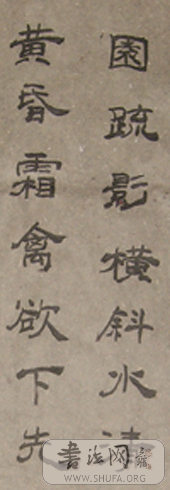 園疏影橫斜水清
黄昏霜禽欲下先
书法网
WWW.SHUFA.ORG